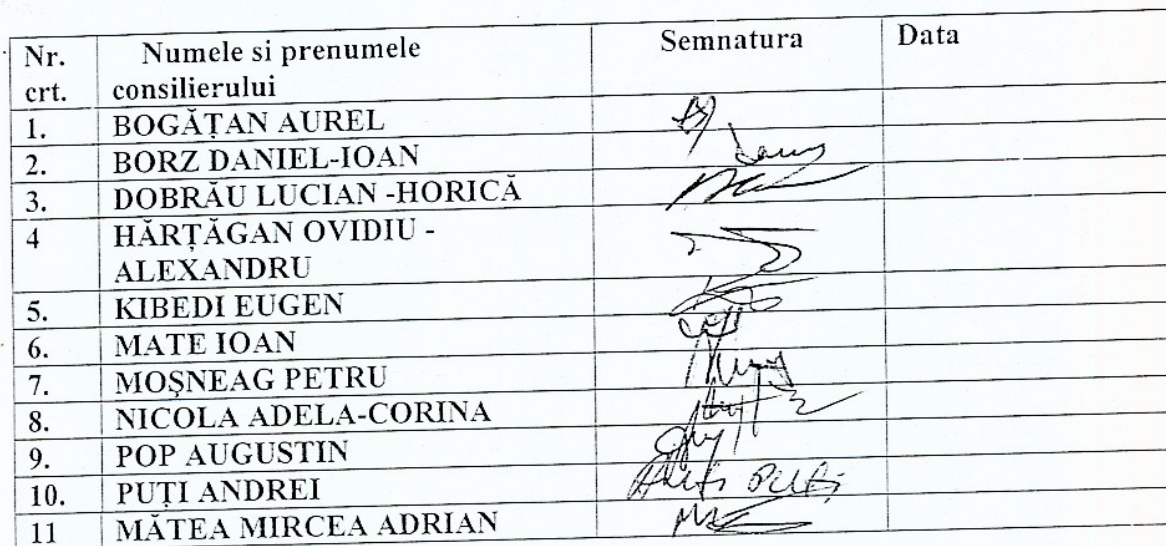 Nr. Numele si prenumele Semnatura Data
crt. consilierului
1. BOGĂȚAN AUREL
2. BORZ DANIEL-IOAN
3. DOBRĂU LUCIAN -HORICĂ
4 HĂRȚĂGAN OVIDIU -
ALEXANDRU
5. KIBEDI EUGEN
6. MATE IOAN
7. MOȘNEAG PETRU
8. NICOLA ADELA-CORINA
9. POP AUGUSTIN
10. PUȚI ANDREI
11 MĂTEA MIRCEA ADRIAN